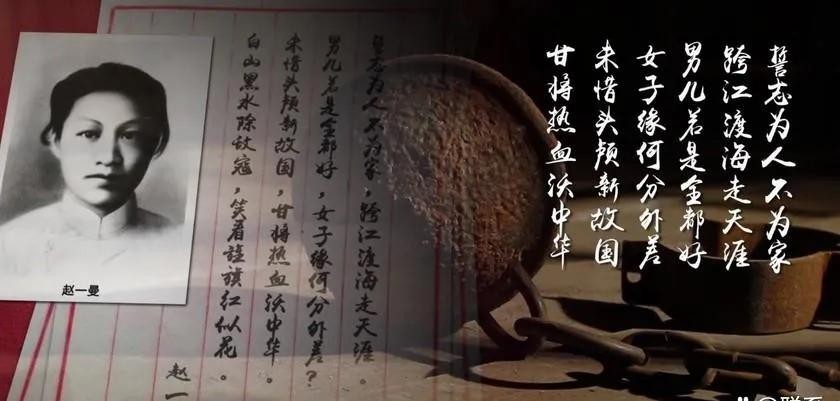 赵一曼
誓志为人不为家，跨江渡海走天涯。
男儿若是全都好，女子缘何分外差？
未惜头颅新故国，甘将热血沃中华。
白山黑水除敌寇，笑看旌旗红似花。
赵一
誓志为人不为家
跨江渡海走天涯
男儿若是全都好
女子缘何分外差
未惜头颅新故国
甘将热血沃中华